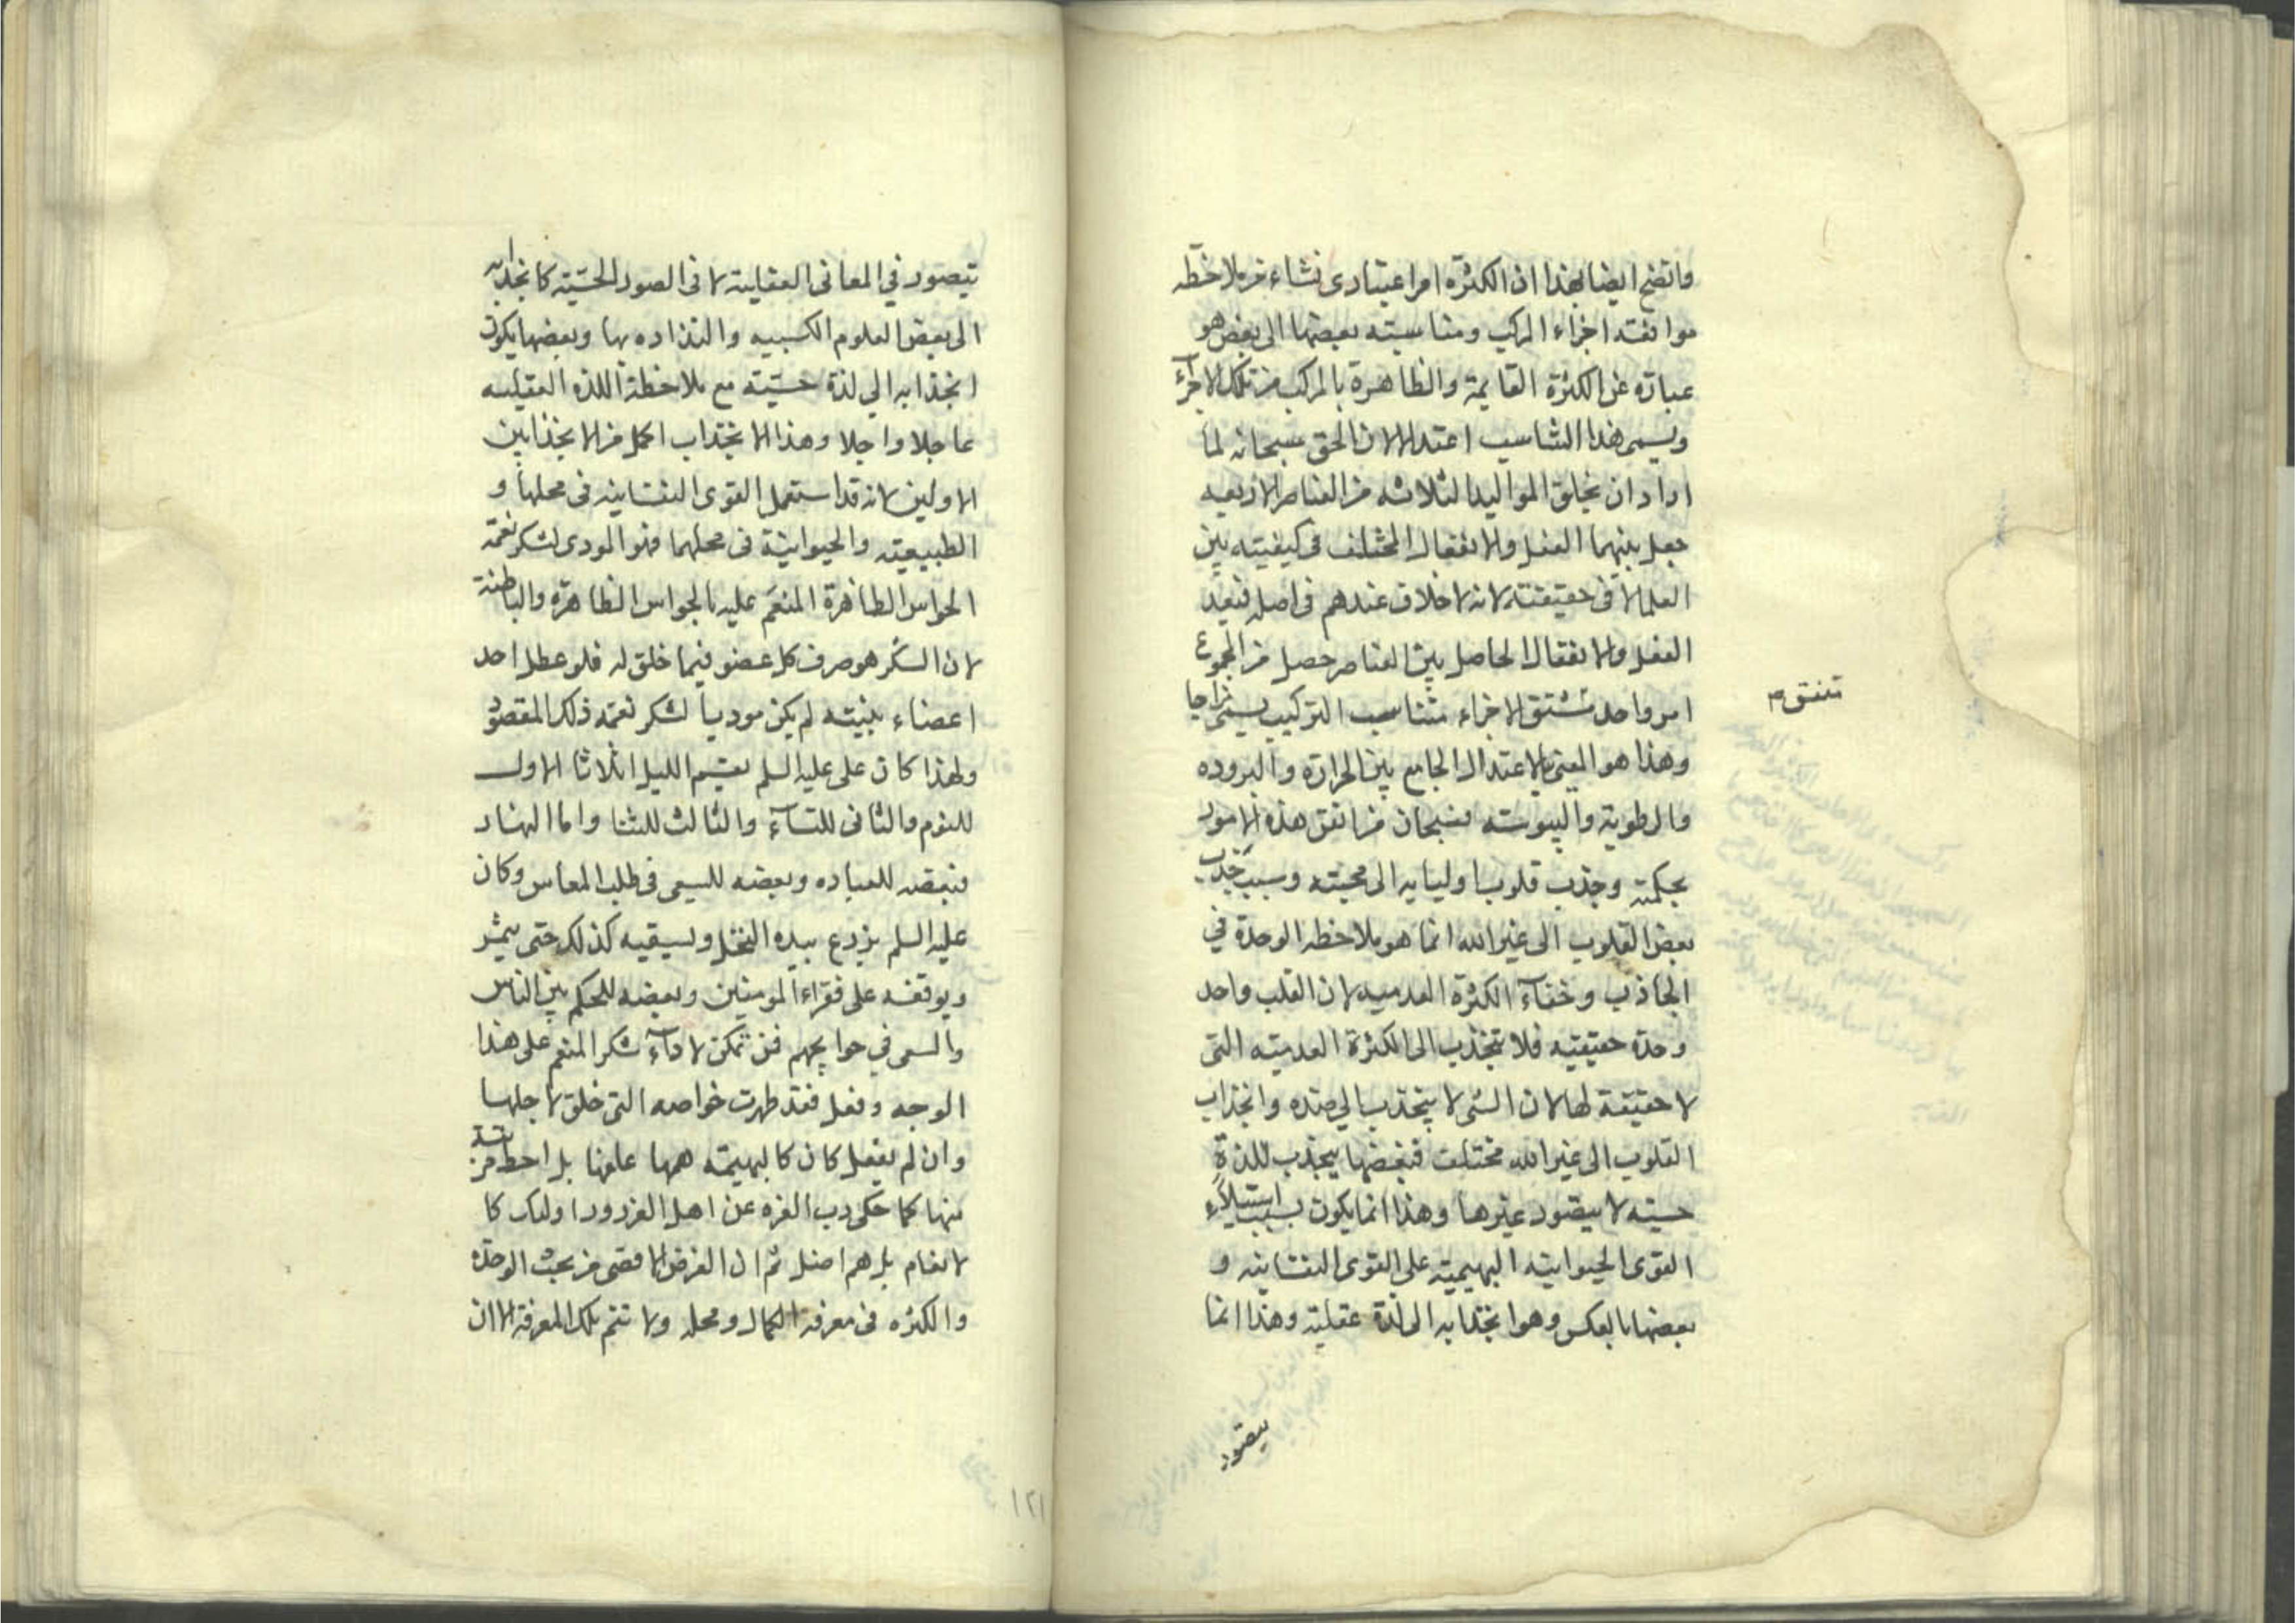 واتضح ايضا بهذا ان الكثرة امر اعتبارى نشاء من ملاحظه
موافقة اجزاء المركب ومناسبته بعضها الى بعض هو
عبارة عن الكثرة القايمة والظاهرة بالمركب من تلك الاجزآء
ويسمى هذا التناسب اعتدالا لان الحق سبحانه لما
اراد ان يخلق المواليد الثلاثه من العناصر الاربعه
جعل بينهما الفعل والانفعال المختلف فى كيفيته بين
العلما لا فى حقيقته لانه لا خلاف عندهم فى اصله فبعد
الفعل والانفعال الحاصل بين العناصر حصل من المجموع
امر واحد متسق الاجزاء متناسب التركيب يسمى مزاجا
تتفق م
وهذا هو المعنى بالاعتدال الجامع بين الحرارة والبروده
والرطوبة واليبوسته فسبحان من اتقن هذه الامور
بحكمته وجذب قلوب اوليايه الى محبته وسبب جذب
بعض القلوب الى غير الله انما هو ملاحظه الوحدة في
الجاذب وخفآء الكثرة العدميه لان القلب واحد
وحدة حقيقيه فلا تنجذب الى الكثرة العدميته التى
لا حقيقة لها لان الشى لا ينجذب الى ضده وانجذاب
القلوب الى غير الله مختلف فبعضها ينجذب للذة
حسيته لا يتصور غيرها وهذا انما يكون بسبب استيلآء
القوى الحيوانيه البهيميته على القوى النفسانيه و
بعضها بالعكس وهو انجذابه الى لذة عقلية وهذا انما
يتصور
يتصور في المعانى العقلية لا فى الصور الحسّيته كانجذابه
الى بعض العلوم الكسبيه والتذاده بها وبعضها يكون
انجذابه الي لذة حسّيته مع ملاحظة اللذه العقليه
عاجلا واجلا وهذا الانجذاب اكمل من الانجذابين
الاولين لانه قد استعمل القوى النفسانيه فى محلها و
الطبيعيته والحيوانية فى محلهما فهو المودى لشكر نعمة
الحواس الظاهرة المنعم عليه بالحواس الظاهرة والباطنة
لان الشكر هو صرف كل عضو فيما خلق له فلو عطل احد
اعضاء بنيته لم يكن موديا لشكر نعمة ذلك المقصود
ولهذا كان على عليه السلم يقسم الليل اثلاثا الاول
للنوم والثانى للنسآء والثالث للثنا واما النهار
فبعضه للعباده وبعضه للسعى فى طلب المعاش وكان
عليه السلم يزرع بيده النخل ويسقيه كذلك حتى يثمر
ويوقفه على فقراء المومنين وبعضه للحكم بين الناس
والسعى في حوايجهم فمن تمكن لادآء شكر المنعم على هذا
الوجه وفعل فقد ظهرت خواصه التى خلق لاجلها
وان لم يفعل كان كالبهيمته همها علفها بل احط رتبة من
منها كما حكى رب العزه عن اهل الغرور اوليك كا
لانعام بل هم اضل ثم ان الغرض الاقصى من بحث الوحدة
والكثره فى معرفة الكمال ومحله ولا تتم تلك المعرفة الا ان
١٢١